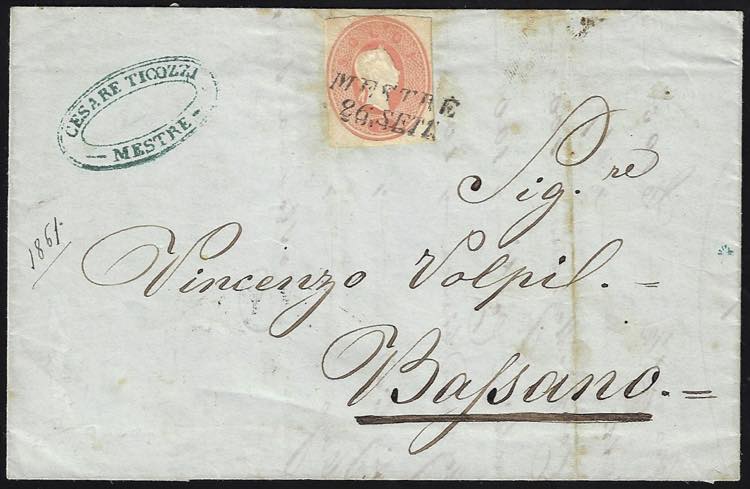 CESARE TICOZZI
— MESTRE —
MESTRE
26. SETT.
Sig.re
Vincenzo Volpi
Bassano. =
1861.